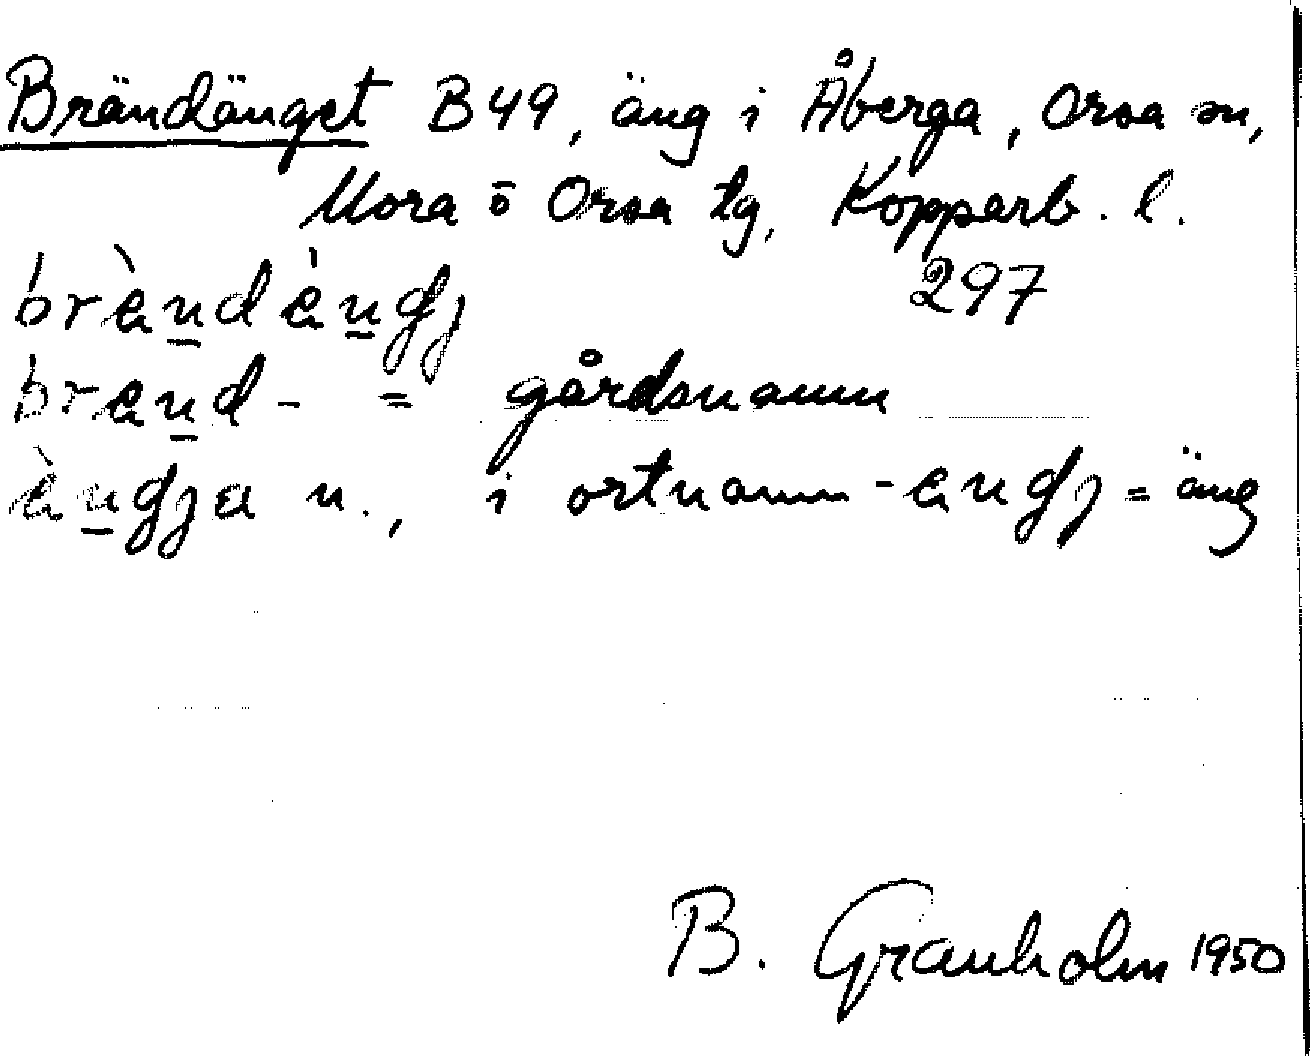 Brändänget B49, äng i Åberga, Orsa sn,
Mora o Orsa tg, Kopparb. l.
brèn̲dèn̲gj 297
bren̲d- = gårdsnamn
èn̲gja n., i ortnamn -engj = äng
B. Granholm 1950